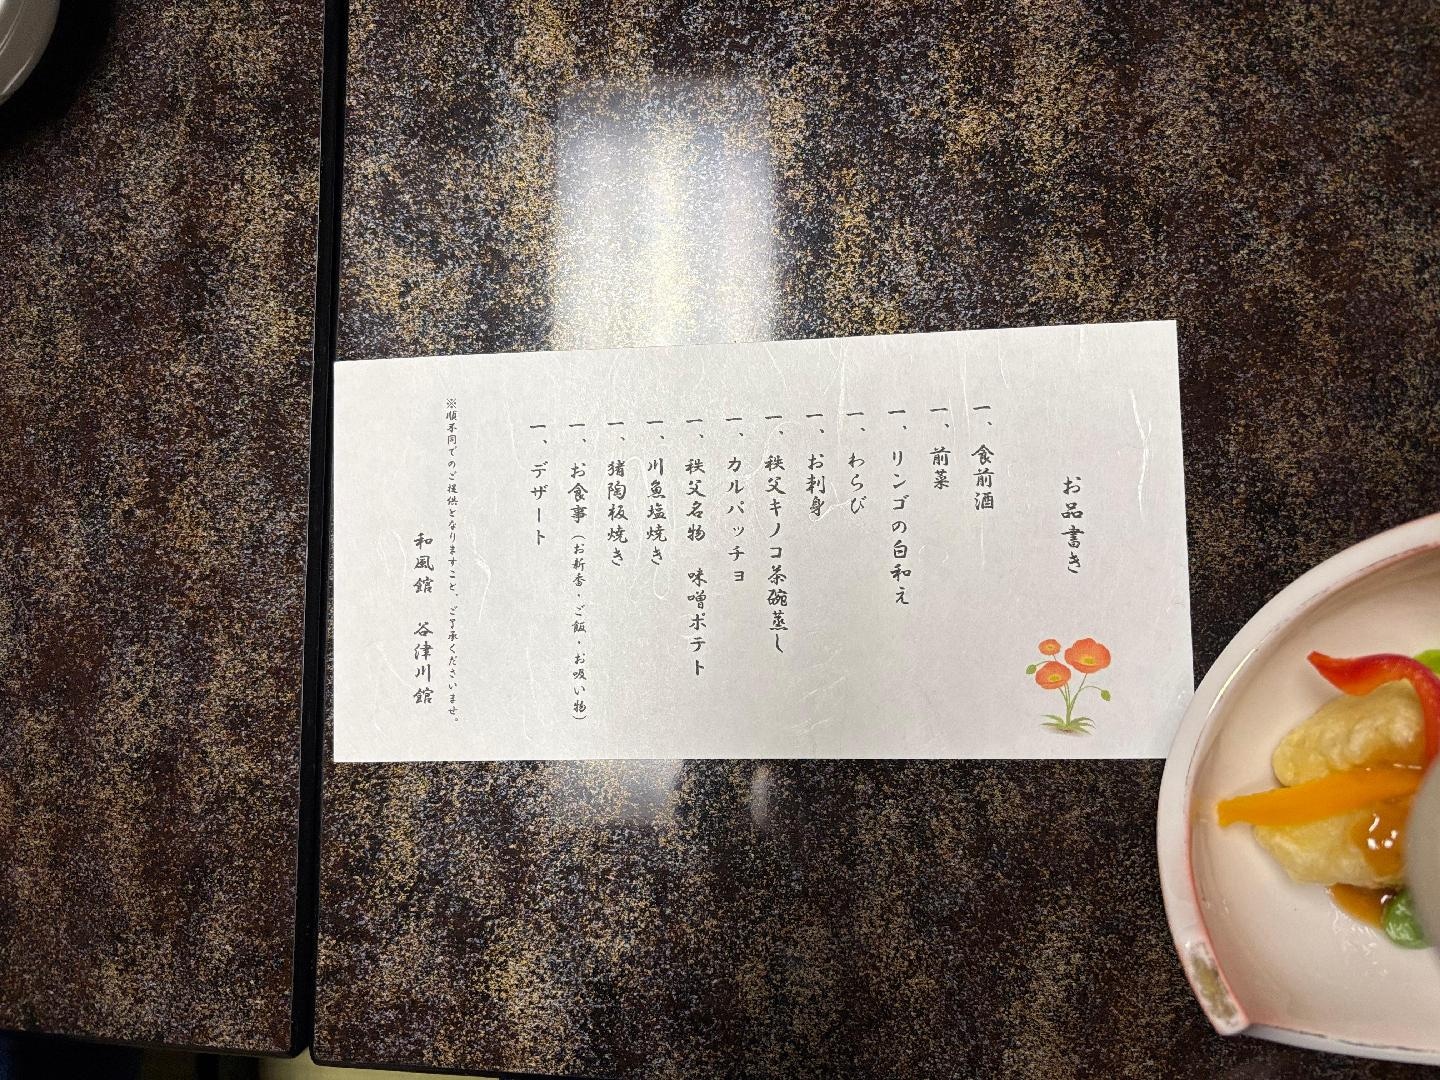 お品書き
一、食前酒
一、前菜
一、リンゴの白和え
一、わらび
一、お刺身
一、秩父キノコ茶碗蒸し
一、カルパッチョ
一、秩父名物　味噌ポテト
一、川魚塩焼き
一、猪陶板焼き
一、お食事（お新香・ご飯・お吸い物）
一、デザート
※順不同でのご提供となりますこと、ご了承くださいませ。
和風館　谷津川館